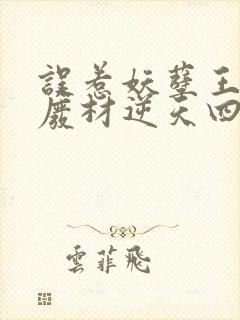 誤惹妖孽王
廢材逆天四
雲菲飛